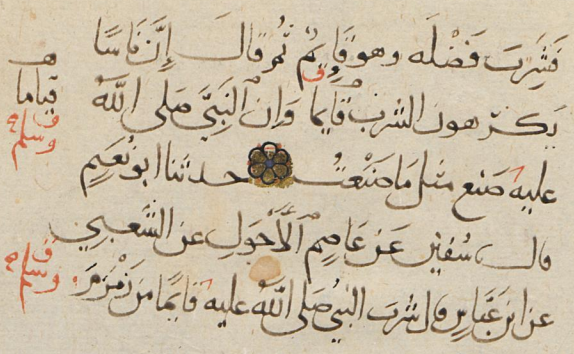 فَشَرِبَ فَضْلَه وهو قَايِمٌ ثُم قالَ إِنَّ نَاسًا
يَكرَهونَ الشربَ قَايما وَإِن النَبِيَّ صَلى اللهُ
عليه صَنع مثلَ مَا صَنَعْتُ حدثنا ابو نُعَيمٍ
قال سُفينُ عَن عَاصِمٍ الأَحْوَلِ عن الشَّعبِي
عن ابن عَبَّاسٍ قال شربَ النبيُ صَلى اللهُ عليه قَايمًا من زَمْزَمَ
قياما
وسلم
وسلم